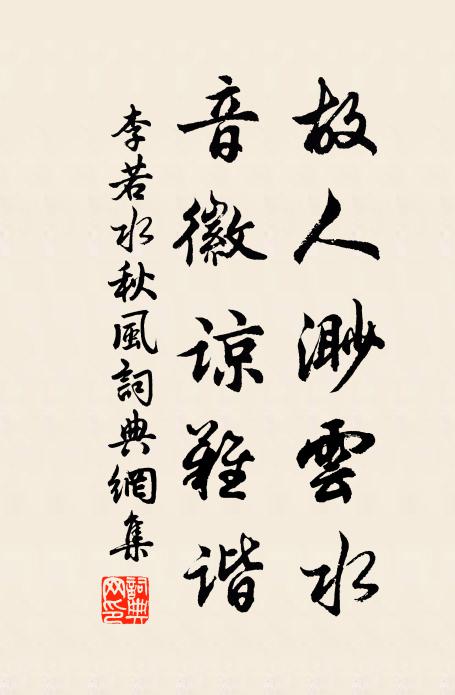 故人渺雲水
音徽谅難谐
李若水秋風詞典網集
詞典网印